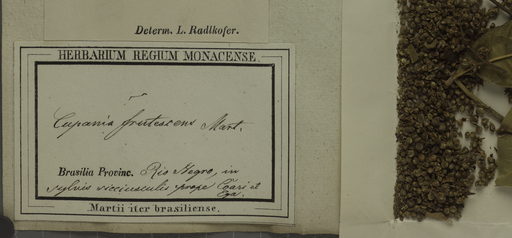 Determ. L. Radlkofer.
HERBARIUM REGIUM MONACENSE.
Cupania frutescens Mart.
Brasilia Provinc. Rio Negro, in
sylvis prope Coari et
Ega.
Martii iter brasiliense.